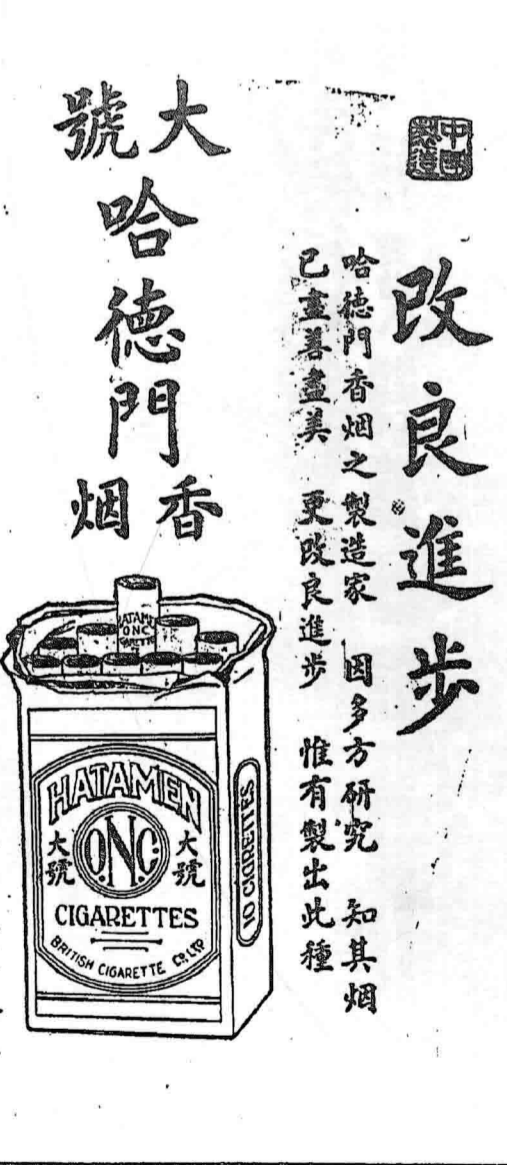 中國
製造
改良進步
哈德門香烟之製造家 因多方研究 知其烟
已盡善盡美 更改良進步 惟有製出此種
大號
哈德門
香烟
HATAMEN
ONC
CIGARETTES
HATAMEN
大號
O.N.C.
大號
CIGARETTES
BRITISH CIGARETTE CO. LTD
10 CIGARETTES